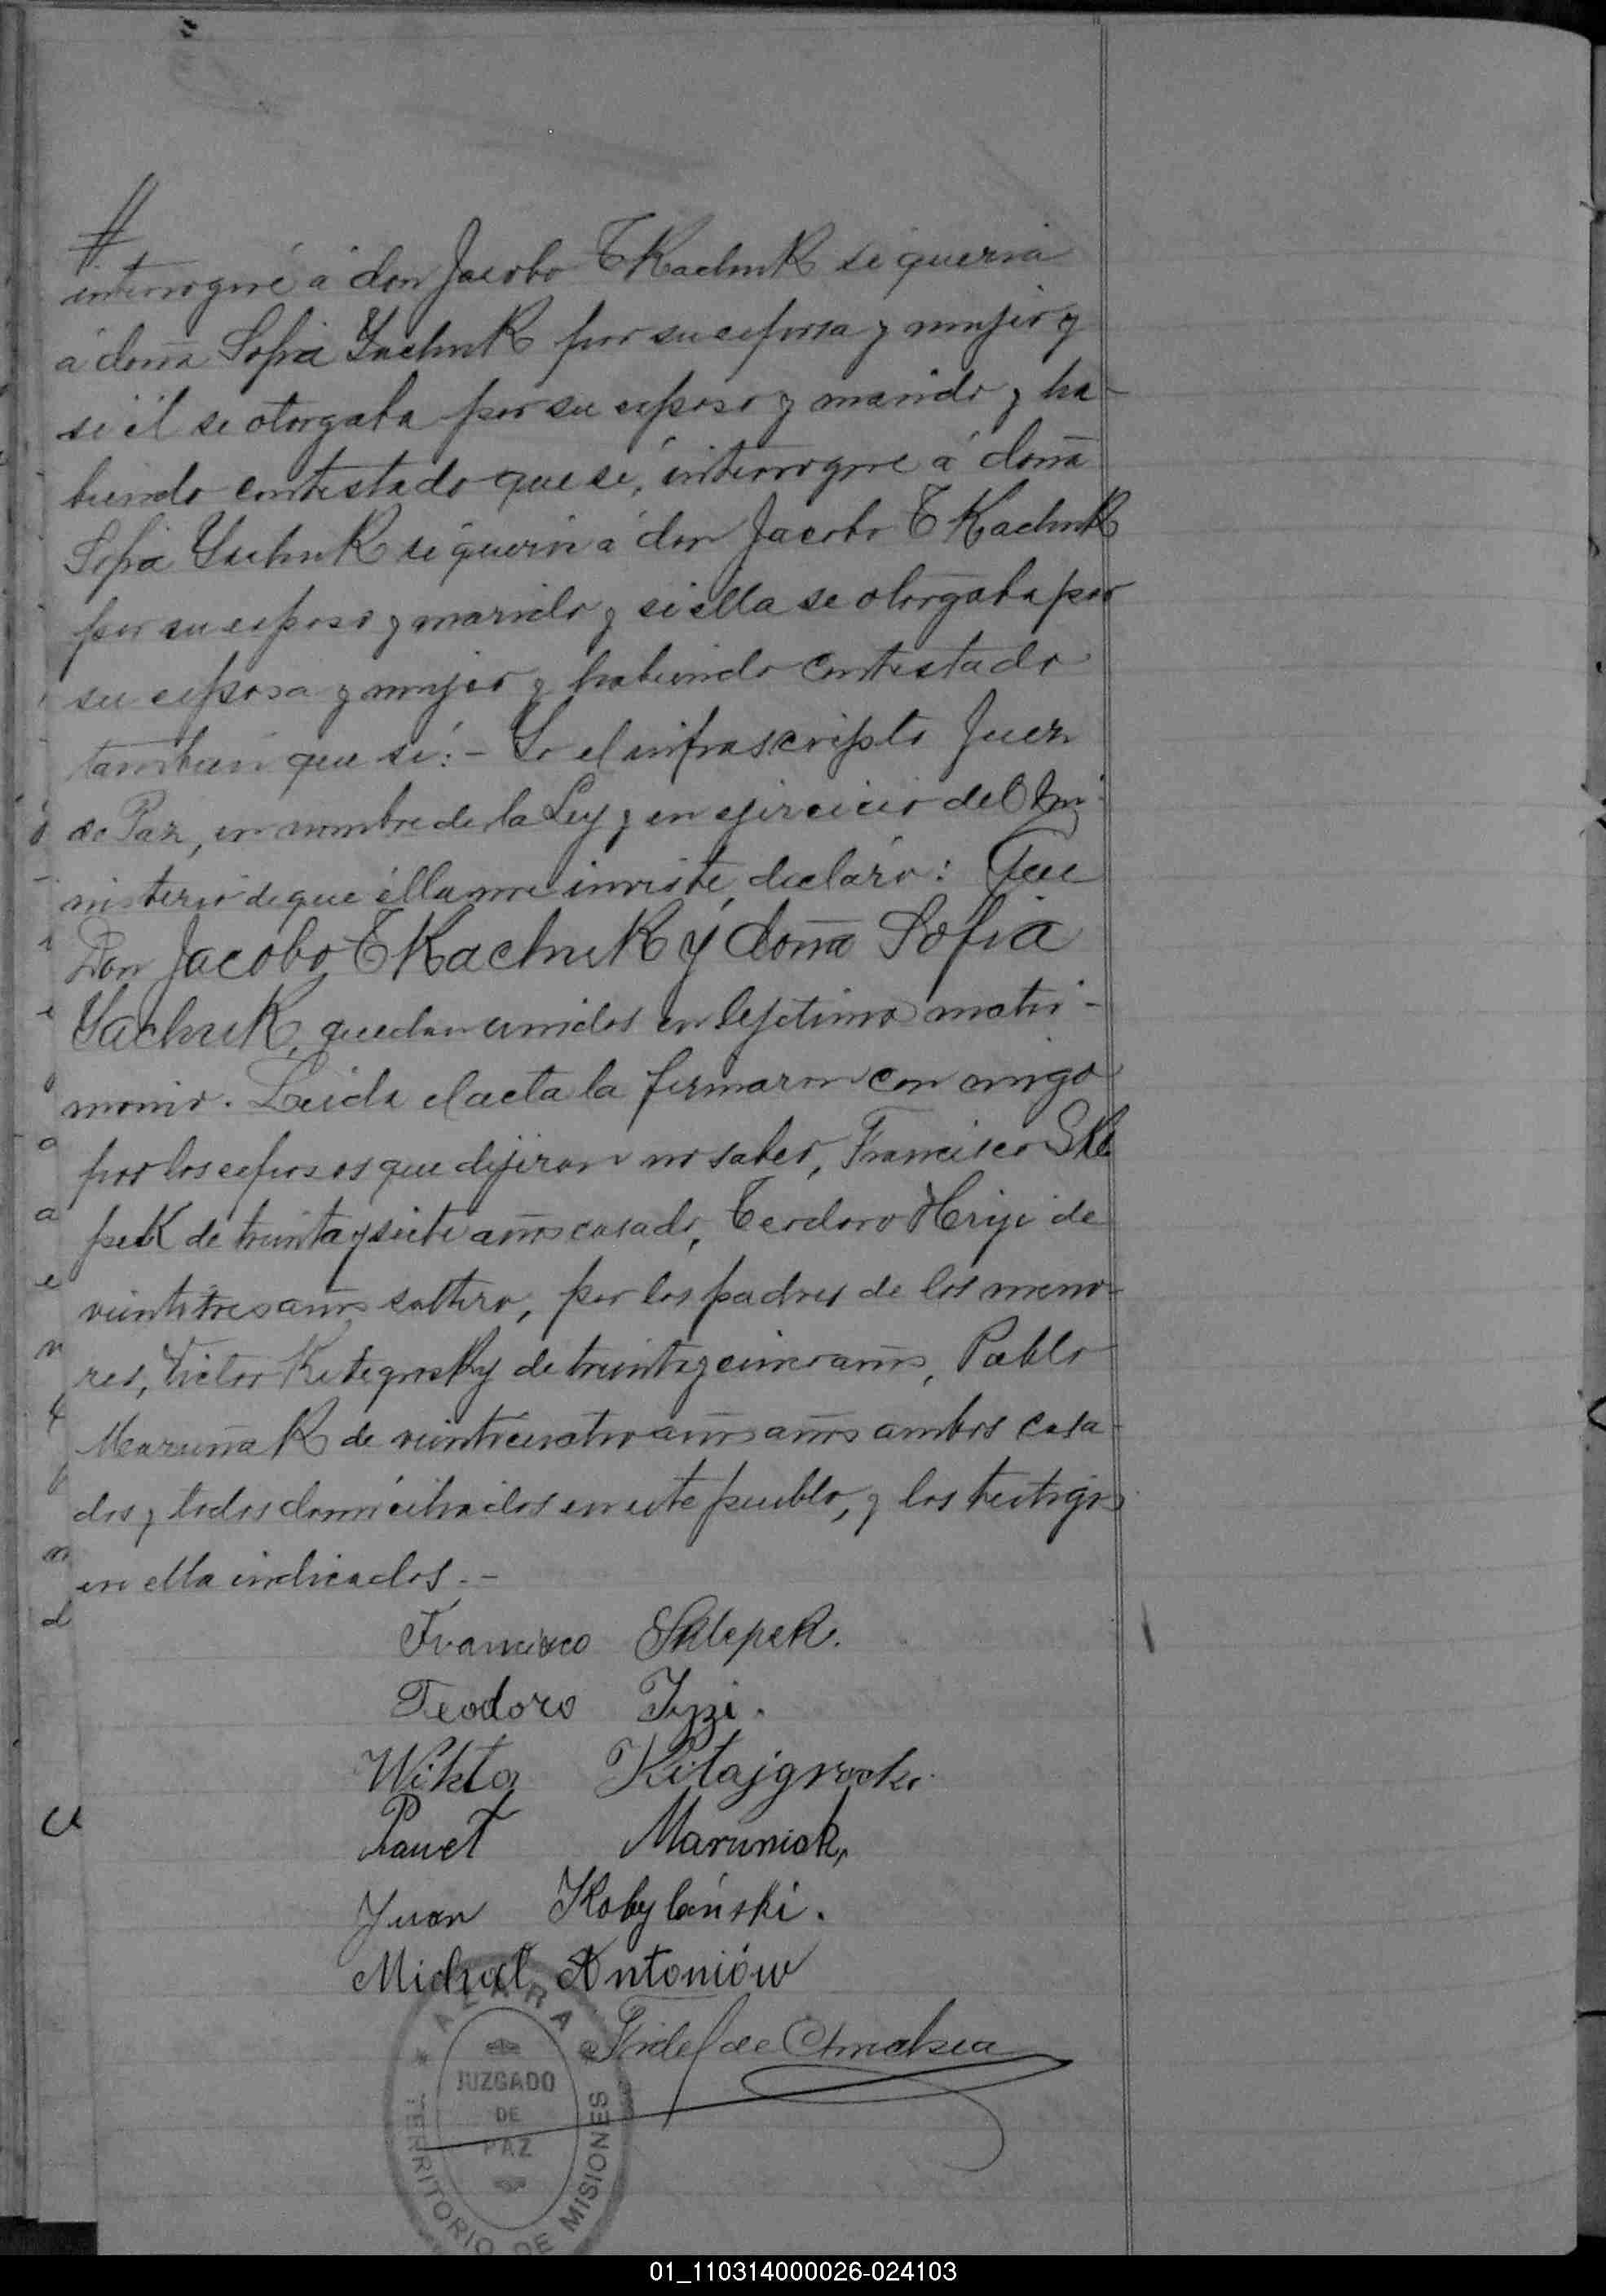 interrogué á don Jacobo TKachuK si queria
á doña Sofia YachuK por su esposa y mujer y
si él se otorgaba por su esposo y marido y ha-
biendo contestado que si, interrogue á doña
Sofia YachuK si queria á don Jacobo TKachuK
por su esposo y marido y si ella se otorgaba por
su esposa y mujer y habiendo contestado
tambien que si:- Yo el infrascripto Juez
de Paz, en nombre de la Ley y en ejercicio del Mi-
nisterio de que élla me inviste, declaro: Que
Don Jacobo TKachuK y doña Sofia
YachuK, quedan unidos en lejitimo matri-
monio. Leida el acta la firmaron con migo
por los esposos que dijeron no saber, Francisco SKle
peK de treinta y siete años casado, Teodoro Hriji de
veintitres años soltero, por los padres de los meno-
res, Victor KitegroskY de treinta y cinco años, Pablo
MaruñaK de veinticuatro años años ambos casa-
dos y todos domiciliados en este pueblo, y los testigos
en ella indicados.-
Francisco Sklepek.
Teodoro Iyzi.
Wiktor Kitajgrocki.
Paweł Maruniak,
Juan Kobylański.
Michał Antoniów
Fidel de Amalsea
AZARA
JUZGADO
DE
PAZ
TERRITORIO DE MISIONES
01_110314000026-024103